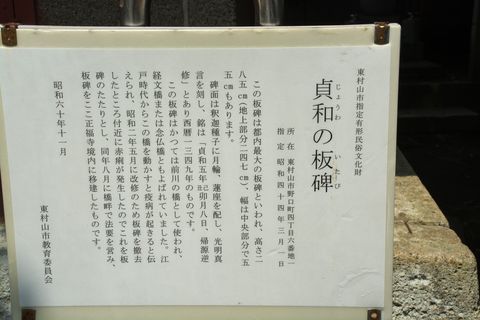 東村山市指定有形民俗文化財
じょうわ いたーび
貞和の板碑
所在 東村山市野口町四丁目六番地一
指定 昭和四十四年三月一日
この板碑は都内最大の板碑といわれ、高さ二
八五㎝(地上部分二四七㎝)、幅は中央部分で五
五㎝もあります。
碑面は釈迦種子に月輪、蓮座を配し、光明真
言を刻し、銘は「貞和五年己卯月八日、帰源逆
修」とあり西暦一三四九年のものです。
この板碑はかつては前川の橋として使われ、
経文橋または念仏橋ともよばれていました。江
戸時代からこの橋を動かすと疫病が起きると伝
えられ、昭和二年五月に改修のため板碑を撤去
したところ付近に赤痢が発生したのでこれを板
碑のたたりとし、同年八月に橋畔で法要を営み、
板碑をここ正福寺境内に移建したものです。
昭和六十年十一月
東村山市教育委員会